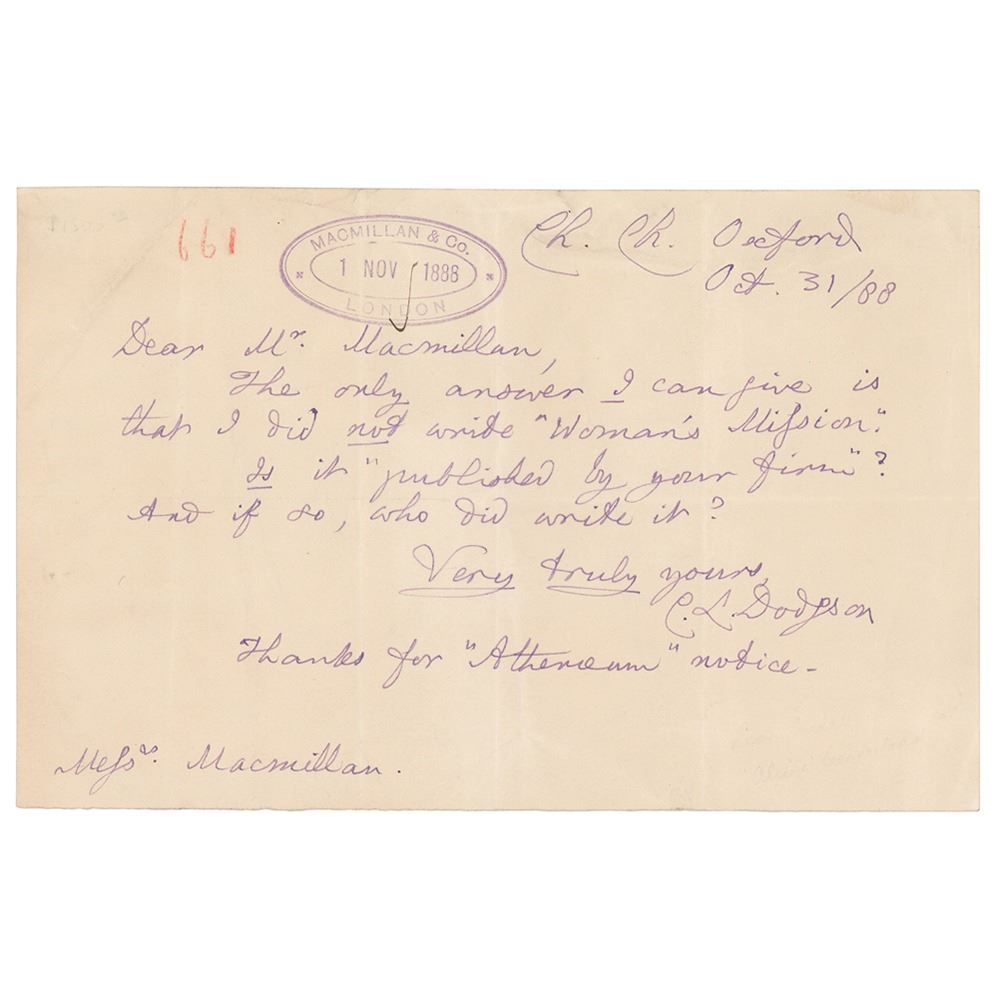 661
MACMILLAN & Co.
1 NOV 1888
LONDON
Ch. Ch. Oxford
Oct. 31/88
Dear Mr. Macmillan,
The only answer I can give is
that I did not write "Woman's Mission."
Is it "published by your firm"?
And if so, who did write it?
Very truly yours,
C. L. Dodgson
Thanks for "Athenæum" notice -
Messrs. Macmillan.